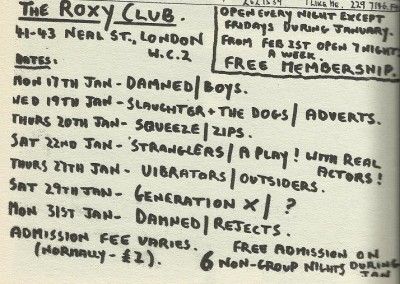 THE ROXY CLUB.
41-43 NEAL ST., LONDON
W.C.2
I LIKE HE. 229 7146.
OPEN EVERY NIGHT EXCEPT
FRIDAYS DURING JANUARY.
FROM FEB 1ST OPEN 7 NIGHTS
A WEEK.
FREE MEMBERSHIP.
DATES:
MON 17TH JAN - DAMNED/BOYS.
WED 19TH JAN - SLAUGHTER + THE DOGS/ADVERTS.
THURS 20TH JAN - SQUEEZE/ZIPS.
SAT 22ND JAN - STRANGLERS/A PLAY! WITH REAL
ACTORS!
THURS 27TH JAN - VIBRATORS/OUTSIDERS.
SAT 29TH JAN - GENERATION X/?
MON 31ST JAN - DAMNED/REJECTS.
ADMISSION FEE VARIES.
(NORMALLY - £1).
FREE ADMISSION ON
6 NON-GROUP NIGHTS DURING
JAN